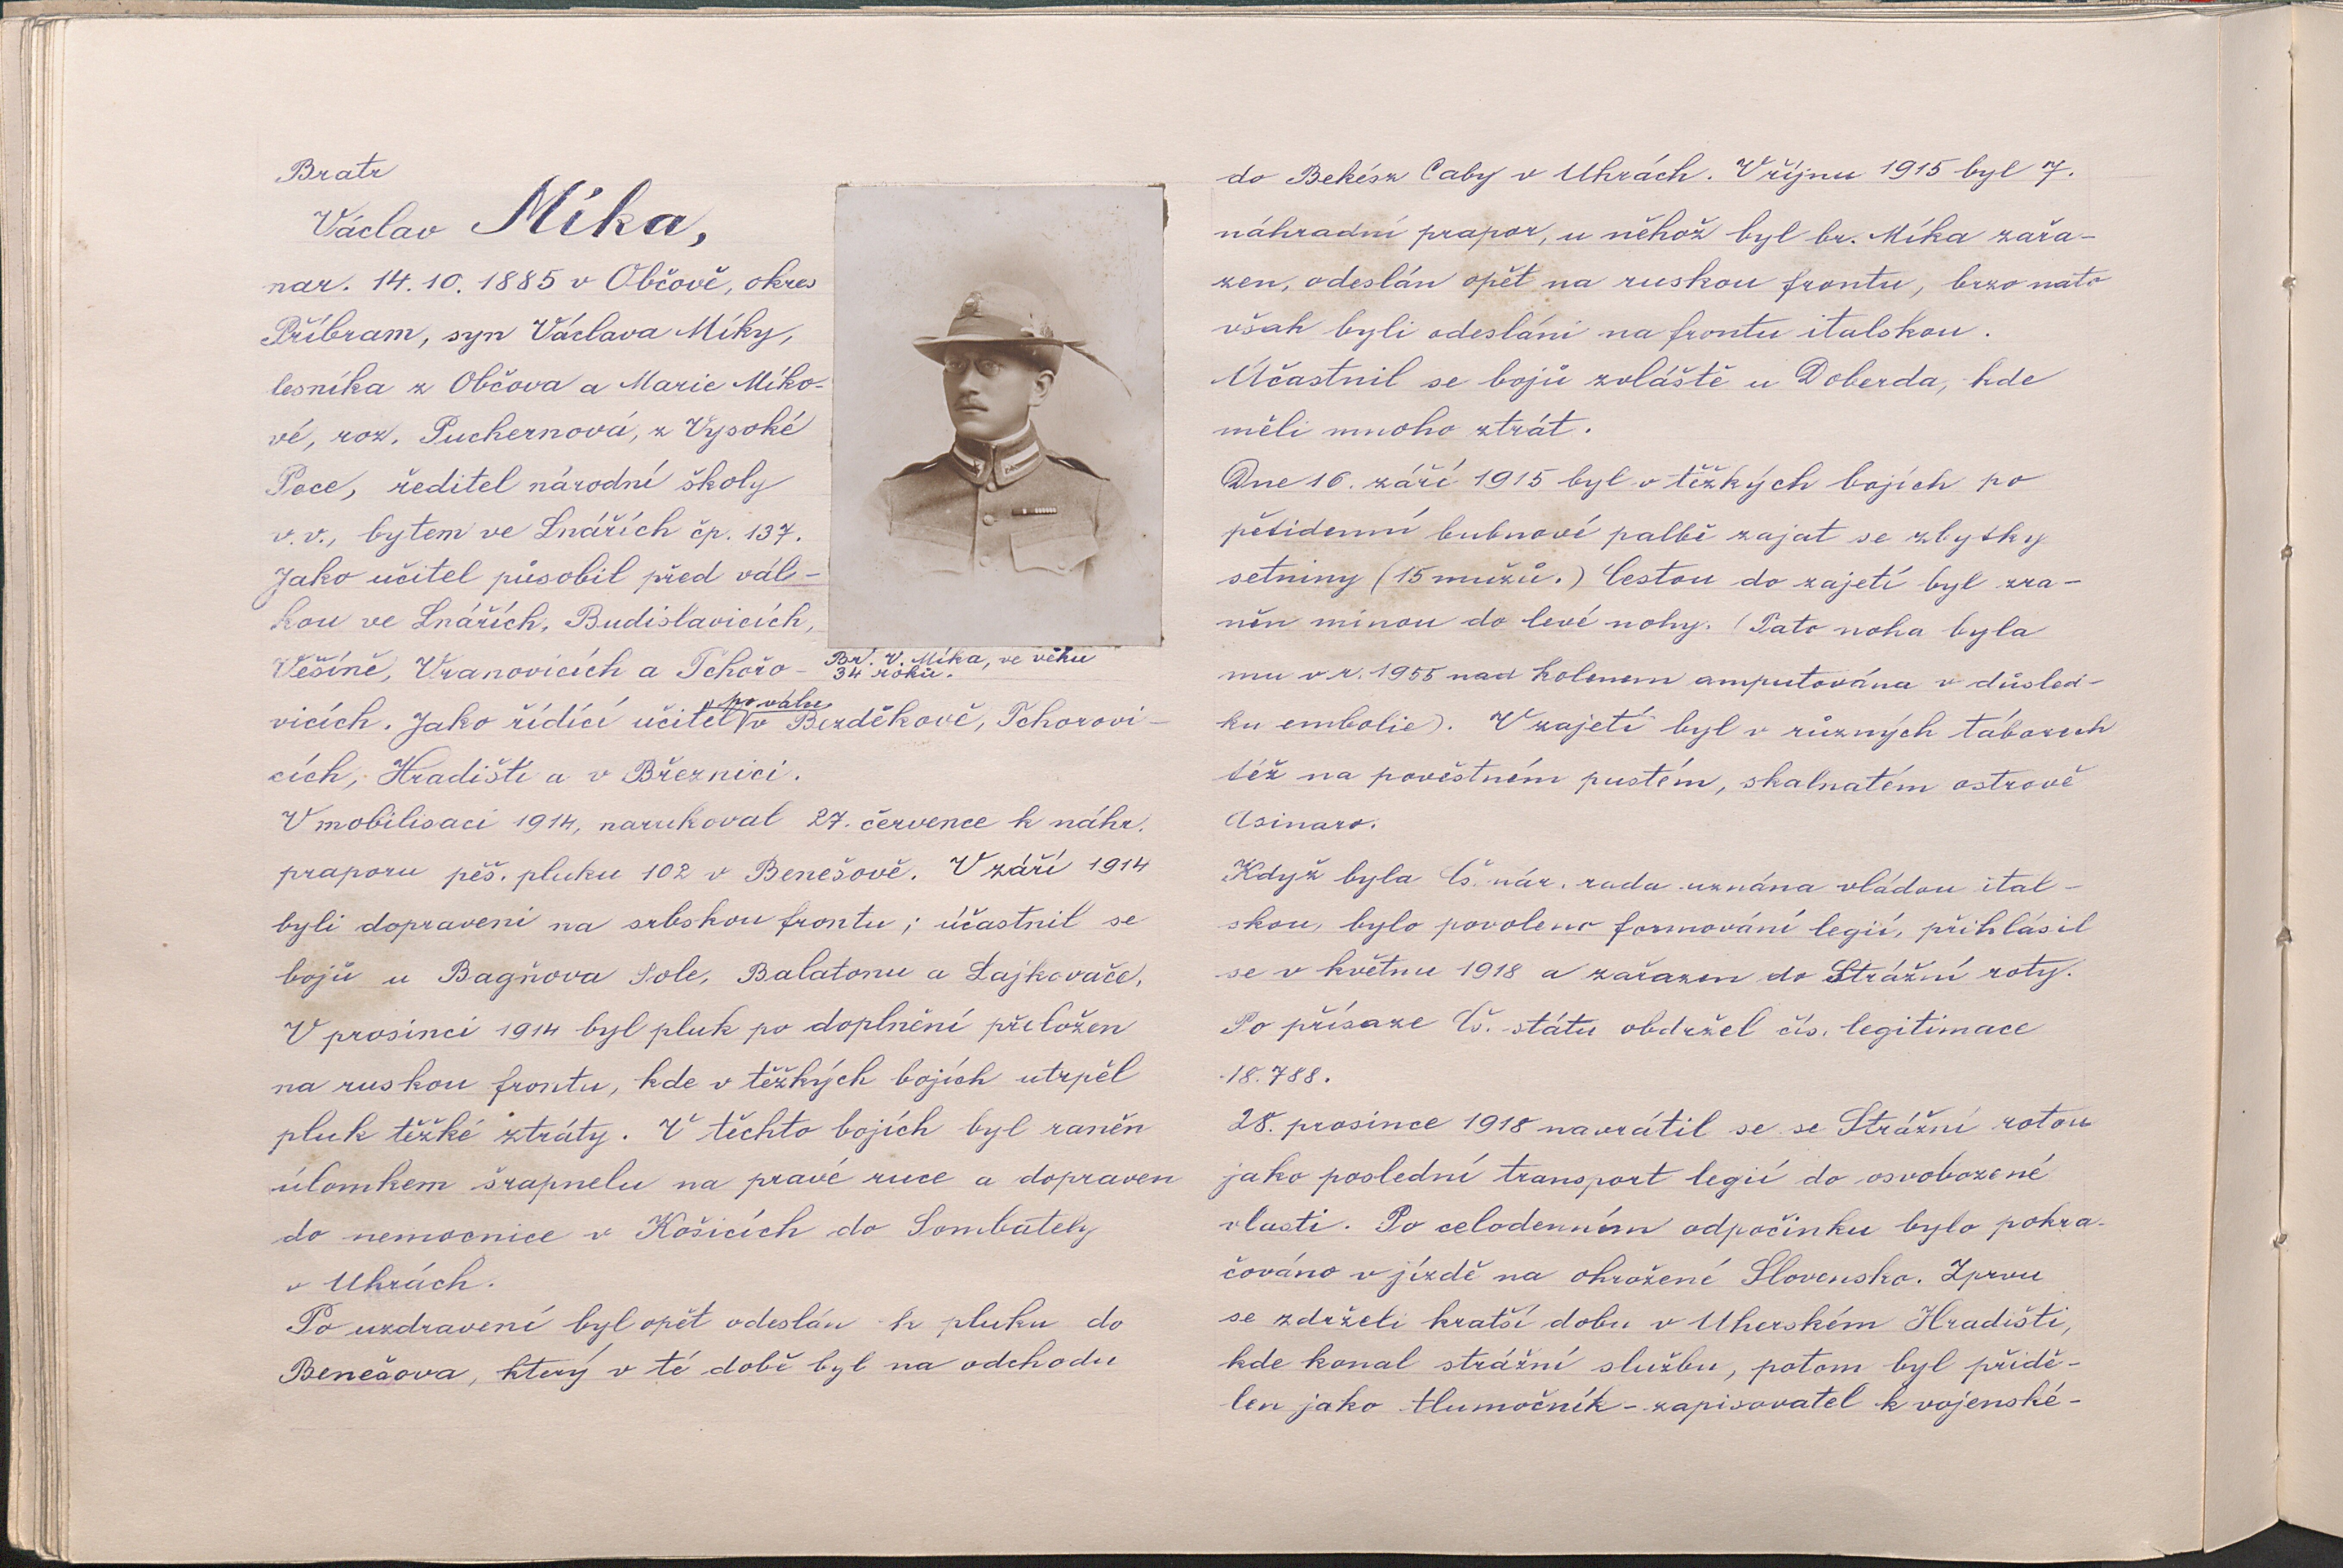 Bratr
Václav Míka,
nar. 14. 10. 1885 v Občově, okres
Příbram, syn Václava Míky,
lesníka z Občova a Marie Míko-
vé, roz. Puchernová, z Vysoké
Pece, ředitel národní školy
v. v., bytem ve Lnářích čp. 137.
Jako učitel působil před vál-
kou ve Lnářích, Budislavicích,
Věšíně, Vranovicích a Tchořo-
vicích. Jako řídící učitel po válce v Bezděkově, Tchorovi-
cích, Hradišti a v Březnici.
V mobilisaci 1914, narukoval 27. července k náhr.
praporu pěš. pluku 102 v Benešově. V září 1914
byli dopraveni na srbskou frontu; účastnil se
bojů u Bagňova Pole, Balatonu a Lajkovače.
V prosinci 1914 byl pluk po doplnění přeložen
na ruskou frontu, kde v těžkých bojích utrpěl
pluk těžké ztráty. V těchto bojích byl raněn
úlomkem šrapnelu na pravé ruce a dopraven
do nemocnice v Košicích do Sombately
v Uhrách.
Po uzdravení byl opět odeslán k pluku do
Benešova, který v té době byl na odchodu
Br. V. Míka, ve věku
34 roků.
do Bekész Caby v Uhrách. V říjnu 1915 byl 7.
náhradní prapor, u něhož byl br. Míka zařa-
zen, odeslán opět na ruskou frontu, brzo nato
však byli odesláni na frontu italskou.
Účastnil se bojů zvláště u Doberda, kde
měli mnoho ztrát.
Dne 16. září 1915 byl v těžkých bojích po
pětidenní bubnové palbě zajat se zbytky
setniny (15 mužů.) Cestou do zajetí byl zra-
něn minou do levé nohy. (Tato noha byla
mu v r. 1955 nad kolenem amputována v důsled-
ku embolie). V zajetí byl v různých táborech
též na pověstném pustém, skalnatém ostrově
Asinaro.
Když byla Čs. nár. rada uznána vládou ital-
skou, bylo povoleno formování legií, přihlásil
se v květnu 1918 a zařazen do Strážní roty.
Po přísaze Čs. státu obdržel čís. legitimace
18.788.
28. prosince 1918 navrátil se se Strážní rotou
jako poslední transport legií do osvobozené
vlasti. Po celodenním odpočinku bylo pokra-
čováno v jízdě na ohrožené Slovensko. Zprvu
se zdrželi kratší dobu v Uherském Hradišti,
kde konal strážní službu, potom byl přidě-
len jako tlumočník-zapisovatel k vojenské-